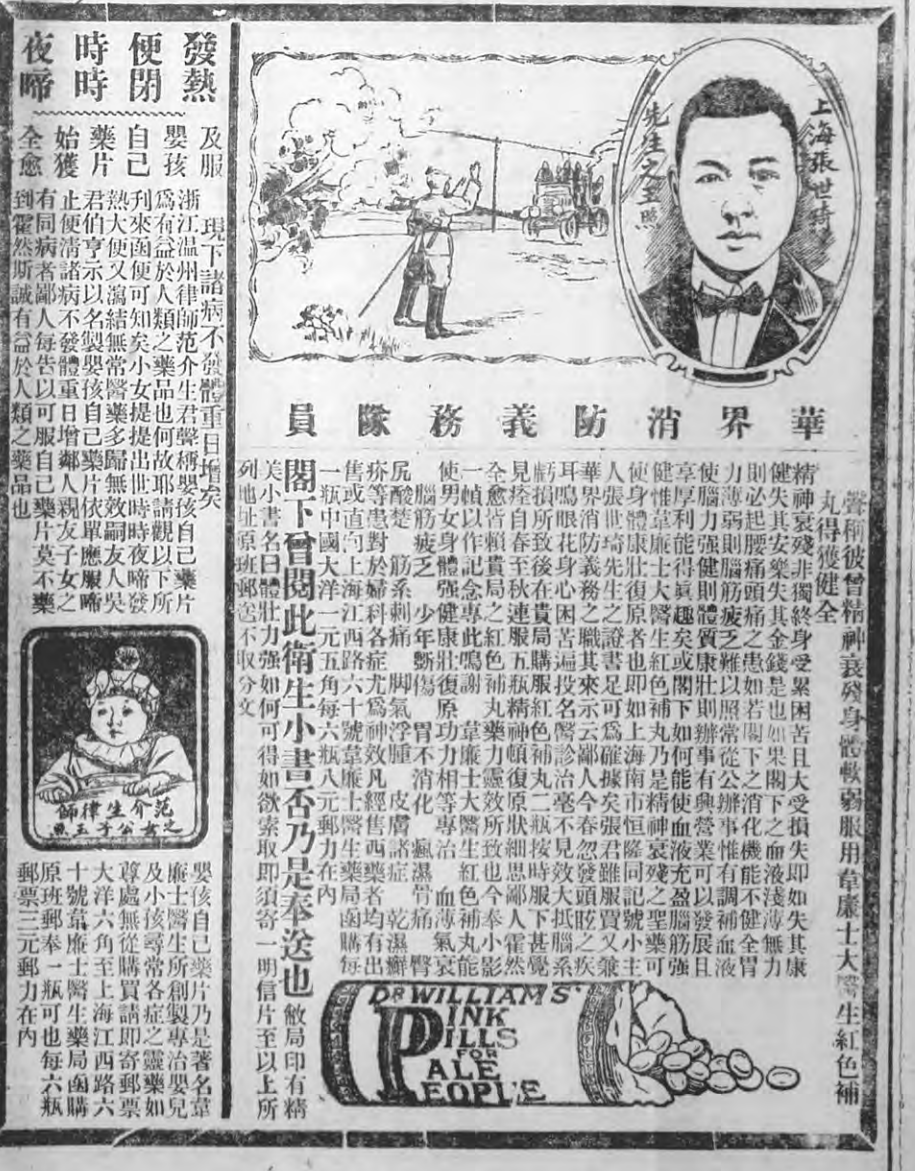 上海張世琦
先生之玉照
華界消防義務隊員
聲稱彼曾精神衰殘身體軟弱服用韋廉士大醫生紅色補
丸得獲健全
精神衰殘非獨終身受累困苦且大受損失即如失其康
健失其安樂失其金錢是也如果閣下之血液淺薄無力
則必起腰痛頭痛之患如若閣下之消化機能不健全胃
力薄弱則腦筋疲乏難以照常從公辦事惟有調補血液
使腦力强健則體質康壯則辦事有興營業可以發展且
享厚利能得眞趣矣或閣下如何能使血液充盈腦筋强
健惟韋廉士大醫生紅色補丸乃是精神衰殘之聖藥可
使身體康壯復原者也即如上海南市恒隆同記號小主
人張世琦先生之證書足可爲確據矣張君雖服買又兼
華界消防義務之職其來示云鄙人今春忽發頭眩之疾
耳鳴眼花身心困苦遍投名醫診治毫不見效大抵腦系
虧損所致後在貴局購服紅色補丸二瓶按時服下甚覺
見痊自春至秋連服五瓶精神頓復原狀細思鄙人霍然
全愈皆賴貴局之紅色補丸藥力靈效所致也今奉小影
一幀以作記念專此鳴謝 韋廉士大醫生紅色補丸能
使男女身體强健康壯復原功力相等專治 血薄氣衰
腦筋疲乏 少年斲傷 胃不消化 瘋濕骨痛 臀
尻酸楚 筋系刺痛 脚氣浮腫 皮膚諸症 乾濕癬
疥等患對於婦科各症尤爲神效凡經售西藥者均有出
售或直向上海江西路六十號韋廉士醫生藥局函購每
一瓶中國大洋一元五角每六瓶八元郵力在內
閣下曾閱此衛生小書否乃是奉送也 敝局印有精
美小書名曰體壯力强如何可得如欲索取即須寄一明信片至以上所
列地址原班郵送不取分文
DR WILLIAMS'
PINK
PILLS
FOR
PALE
PEOPLE
發熱
便閉
時時
夜啼
及服
嬰孩
自己
藥片
始獲
全愈
現下諸病不發體重日增矣
浙江温州律師范介生君聲稱嬰孩自己藥片
爲有益於人類之藥品也何故耶請觀以下所
刊來函便可知矣小女提提出世時時夜啼發
熱大便又瀉結無常醫藥多歸無效嗣友人吳
君伯亨示以名製嬰孩自己藥片依單應服啼
止便清諸病不發體重日增鄰人親友子女之
有同病者鄙人每告以可服自己藥片莫不藥
到霍然斯誠有益於人類之藥品也
范介生律師
之女公子玉照
嬰孩自己藥片乃是著名韋
廉士醫生所創製專治嬰兒
及小孩尋常各症之靈藥如
尊處無從購買請即寄郵票
大洋六角至上海江西路六
十號韋廉士醫生藥局函購
原班郵奉一瓶可也每六瓶
郵票三元郵力在內